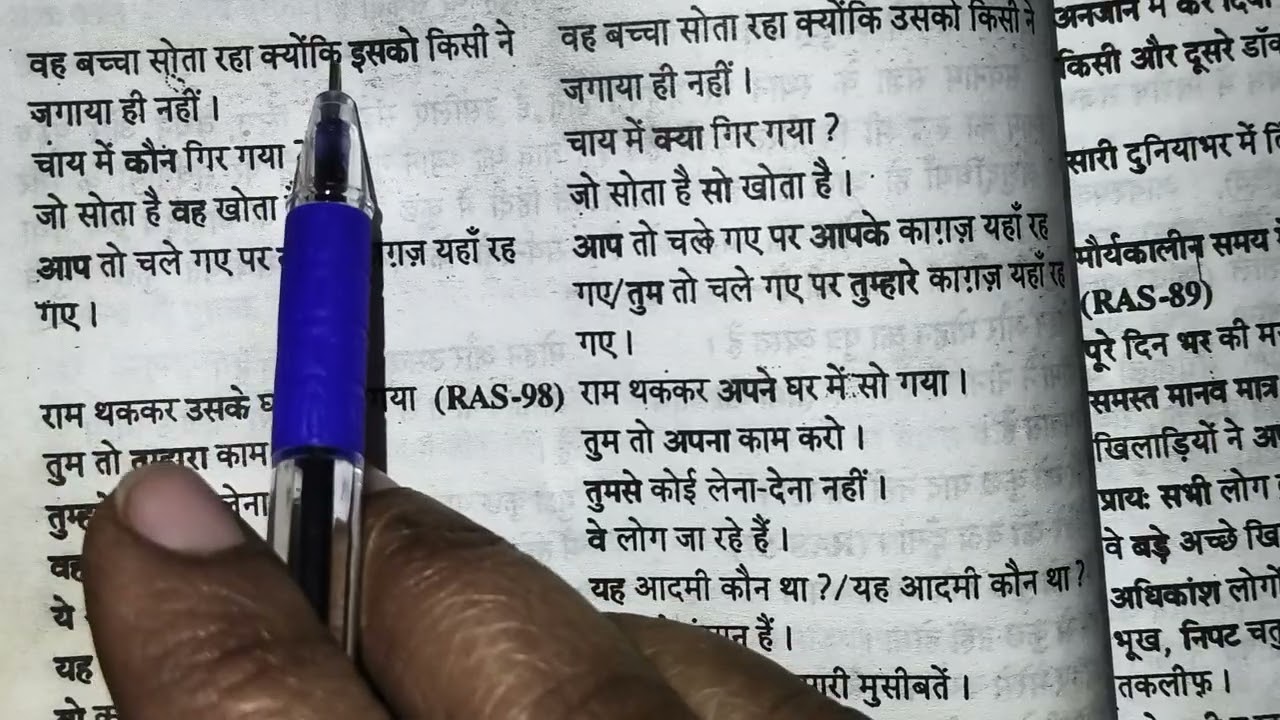 वह बच्चा सोता रहा क्योंकि इसको किसी ने
जगाया ही नहीं।
चाय में कौन गिर गया
जो सोता है वह खोता
आप तो चले गए पर काग़ज़ यहाँ रह
गए।
राम थककर उसके गया (RAS-98)
तुम तो तुम्हारा काम
लेना
वह
ये
यह
वह बच्चा सोता रहा क्योंकि उसको किसी ने
जगाया ही नहीं।
चाय में क्या गिर गया ?
जो सोता है सो खोता है।
आप तो चले गए पर आपके काग़ज़ यहाँ रह
गए/तुम तो चले गए पर तुम्हारे काग़ज़ यहाँ रह
गए।
राम थककर अपने घर में सो गया।
तुम तो अपना काम करो।
तुमसे कोई लेना-देना नहीं।
वे लोग जा रहे हैं।
यह आदमी कौन था ?/यह आदमी कौन था ?
हैं।
मुसीबतें।
अनजान में कर
किसी और दूसरे
सारी दुनियाभर में
मौर्यकालीन समय
(RAS-89)
पूरे दिन भर की
समस्त मानव मात्र
खिलाड़ियों ने
प्रायः सभी लोग
वे बड़े अच्छे
अधिकांश लोगों
भूख, निपट
तकलीफ़।